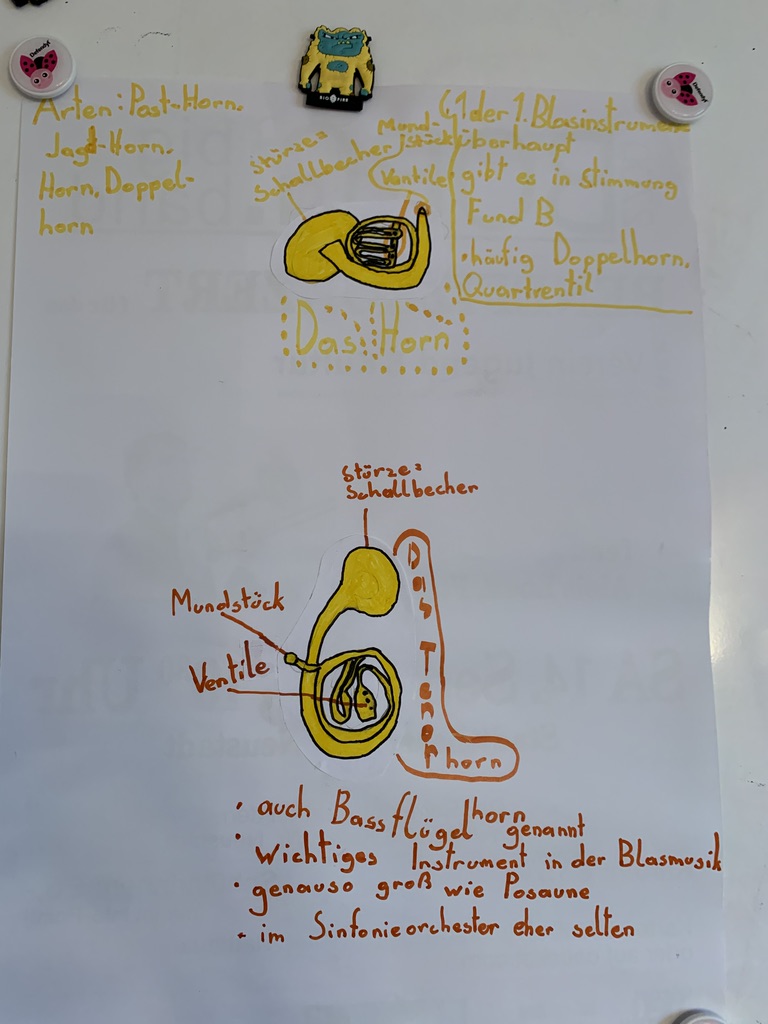 Arten: Post-Horn,
Jagd-Horn,
Horn, Doppel-
horn
Stürze=
Schallbecher
Mund-
stück
Ventile
1 der 1. Blasinstrumente
überhaupt
gibt es in Stimmung
F und B
• häufig Doppelhorn,
Quartventil
Das Horn
Stürze=
Schallbecher
Mundstück
Ventile
Das Tenorhorn
• auch Bassflügelhorn genannt
• wichtiges Instrument in der Blasmusik
• genauso groß wie Posaune
• im Sinfonieorchester eher selten